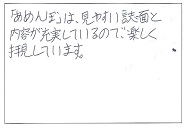 「あめんぼ」は、見やすい誌面と
内容が充実しているので楽しく
拝見しています。